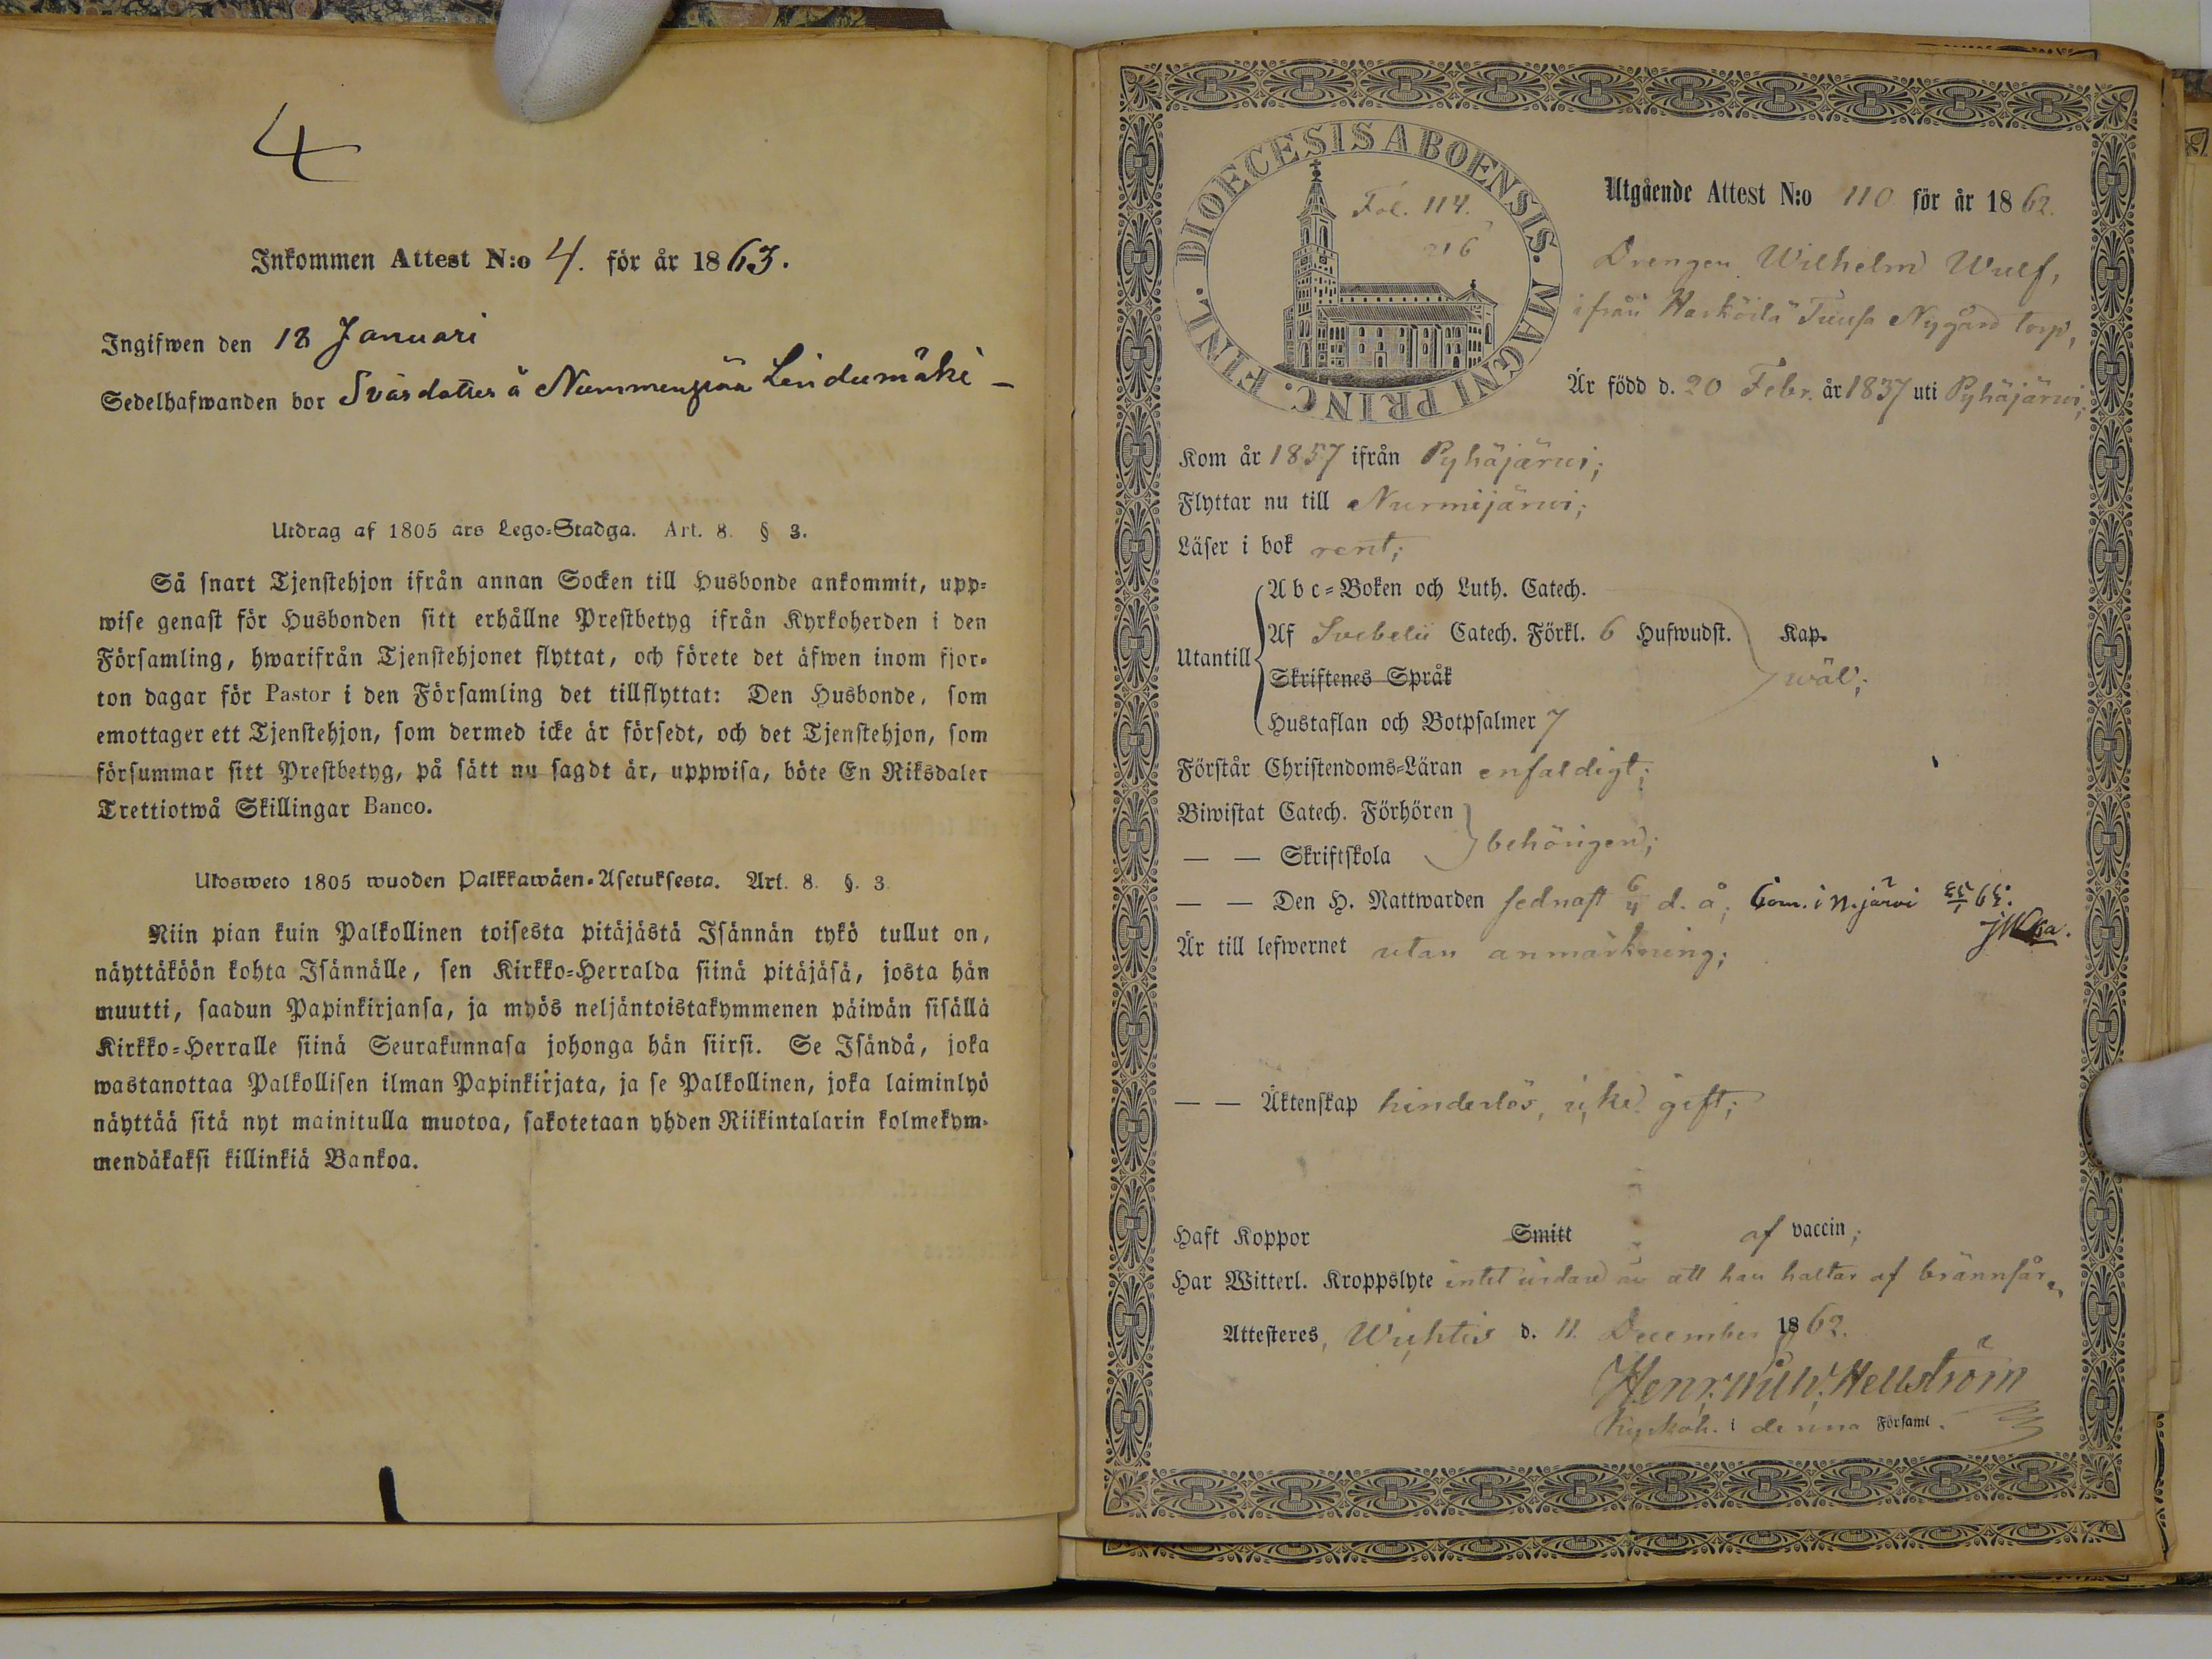 4
Inkommen Attest N:o 4. för år 1863.
Ingifwen den 18 Januari
Sedelhafwanden bor Svärdotter å Nummenpää Lindumäki –
Utdrag af 1805 års Lego-Stadga. Art. 8. § 3.
Så snart Tjenstehjon ifrån annan Socken till Husbonde ankommit, upp-
wise genast för Husbonden sitt erhållne Prestbetyg ifrån Kyrkoherden i den
Församling, hwarifrån Tjenstehjonet flyttat, och förete det äfwen inom fjor-
ton dagar för Pastor i den Församling det tillflyttat: Den Husbonde, som
emottager ett Tjenstehjon, som dermed icke är försedt, och det Tjenstehjon, som
försummar sitt Prestbetyg, på sätt nu sagdt är, uppwisa, böte En Riksdaler
Trettiotwå Skillingar Banco.
Ulosweto 1805 wuoden Palkkawäen-Asetuksesta. Art. 8. §. 3.
Niin pian kuin Palkollinen toisesta pitäjästä Isännän tykö tullut on,
näyttäköön kohta Isännälle, sen Kirkko-Herralda siinä pitäjäsä, josta hän
muutti, saadun Papinkirjansa, ja myös neljäntoistakymmenen päiwän sisällä
Kirkko-Herralle siinä Seurakunnasa johonga hän siirsi. Se Isändä, joka
wastanottaa Palkollisen ilman Papinkirjata, ja se Palkollinen, joka laiminlyö
näyttää sitä nyt mainitulla muotoa, sakotetaan yhden Riikintalarin kolmekym-
mendäkaksi killinkiä Bankoa.
DIOECESIS ABOENSIS. MAGNI PRINC. FINL.
Fol. 114.
216
Utgående Attest N:o 110 för år 1862.
Drengen Wilhelm Wulf,
ifrån Harköilä Tuusa Nygård torp,
Är född d. 20 Febr. år 1837 uti Pyhäjärwi;
Kom år 1857 ifrån Pyhäjärwi;
Flyttar nu till Nurmijärwi;
Läser i bok rent;
Utantill
Abc-Boken och Luth. Catech.
Af Svebelii Catech. Förkl. 6 Hufwudst. Kap.
Skriftenes Språk wäl;
Hustaflan och Botpsalmer 7
Förstår Christendoms-Läran enfaldigt;
Biwistat Catech. Förhören
— — Skriftskola behörigen;
— — Den H. Nattwarden sednast 6/4 d. å; Com. i N.järvi
Är till lefwernet utan anmärkning;
— — Äktenskap hinderlös, icke gift;
Haft Koppor Smitt af vaccin;
Har Witterl. Kroppslyte intet widare än att han haltar af brännsår
Attesteres, Wichtis d. 11. December 1862.
Henr. Wilh. Hellström
Kyrkoh. i denna Församl.